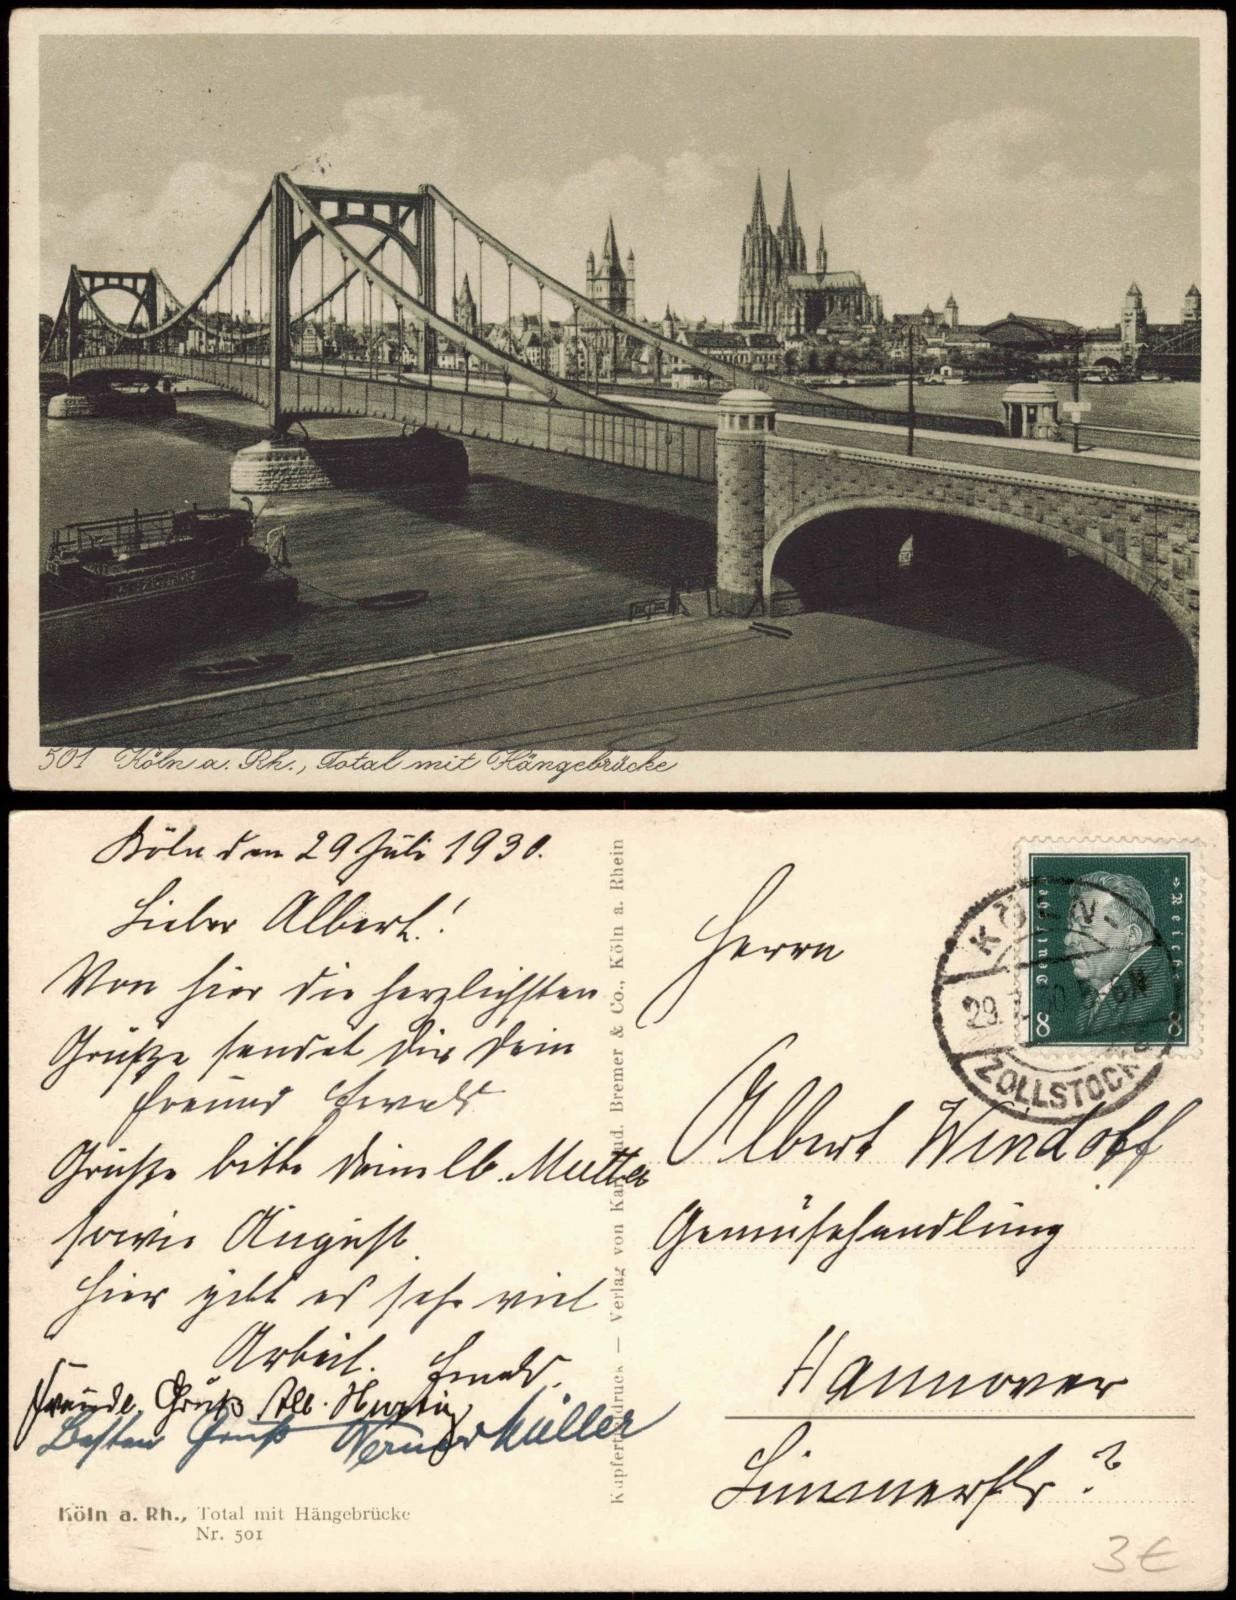 501 Köln a. Rh., Total mit Hängebrücke
Köln den 29 Juli 1930.
Lieber Albert!
Von hier die herzlichsten
Grüße sendet Dir Dein
Freund Ewald
Grüße bitte Deine lb. Mutter
sowie August.
Hier gibt es sehr viel
Arbeit. Ewald.
Freundl. Gruß Alb.
Besten Gruß Werner Müller
Köln a. Rh., Total mit Hängebrücke
Nr. 501
Kupfertiefdruck — Verlag von Karl Rud. Bremer & Co., Köln a. Rhein
Deutsches Reich
8 8
KÖLN-
29. 30 5-6N
ZOLLSTOCK
Herrn
Albert Windorff
Gemüsehandlung
Hannover
Limmerstr ?
3€